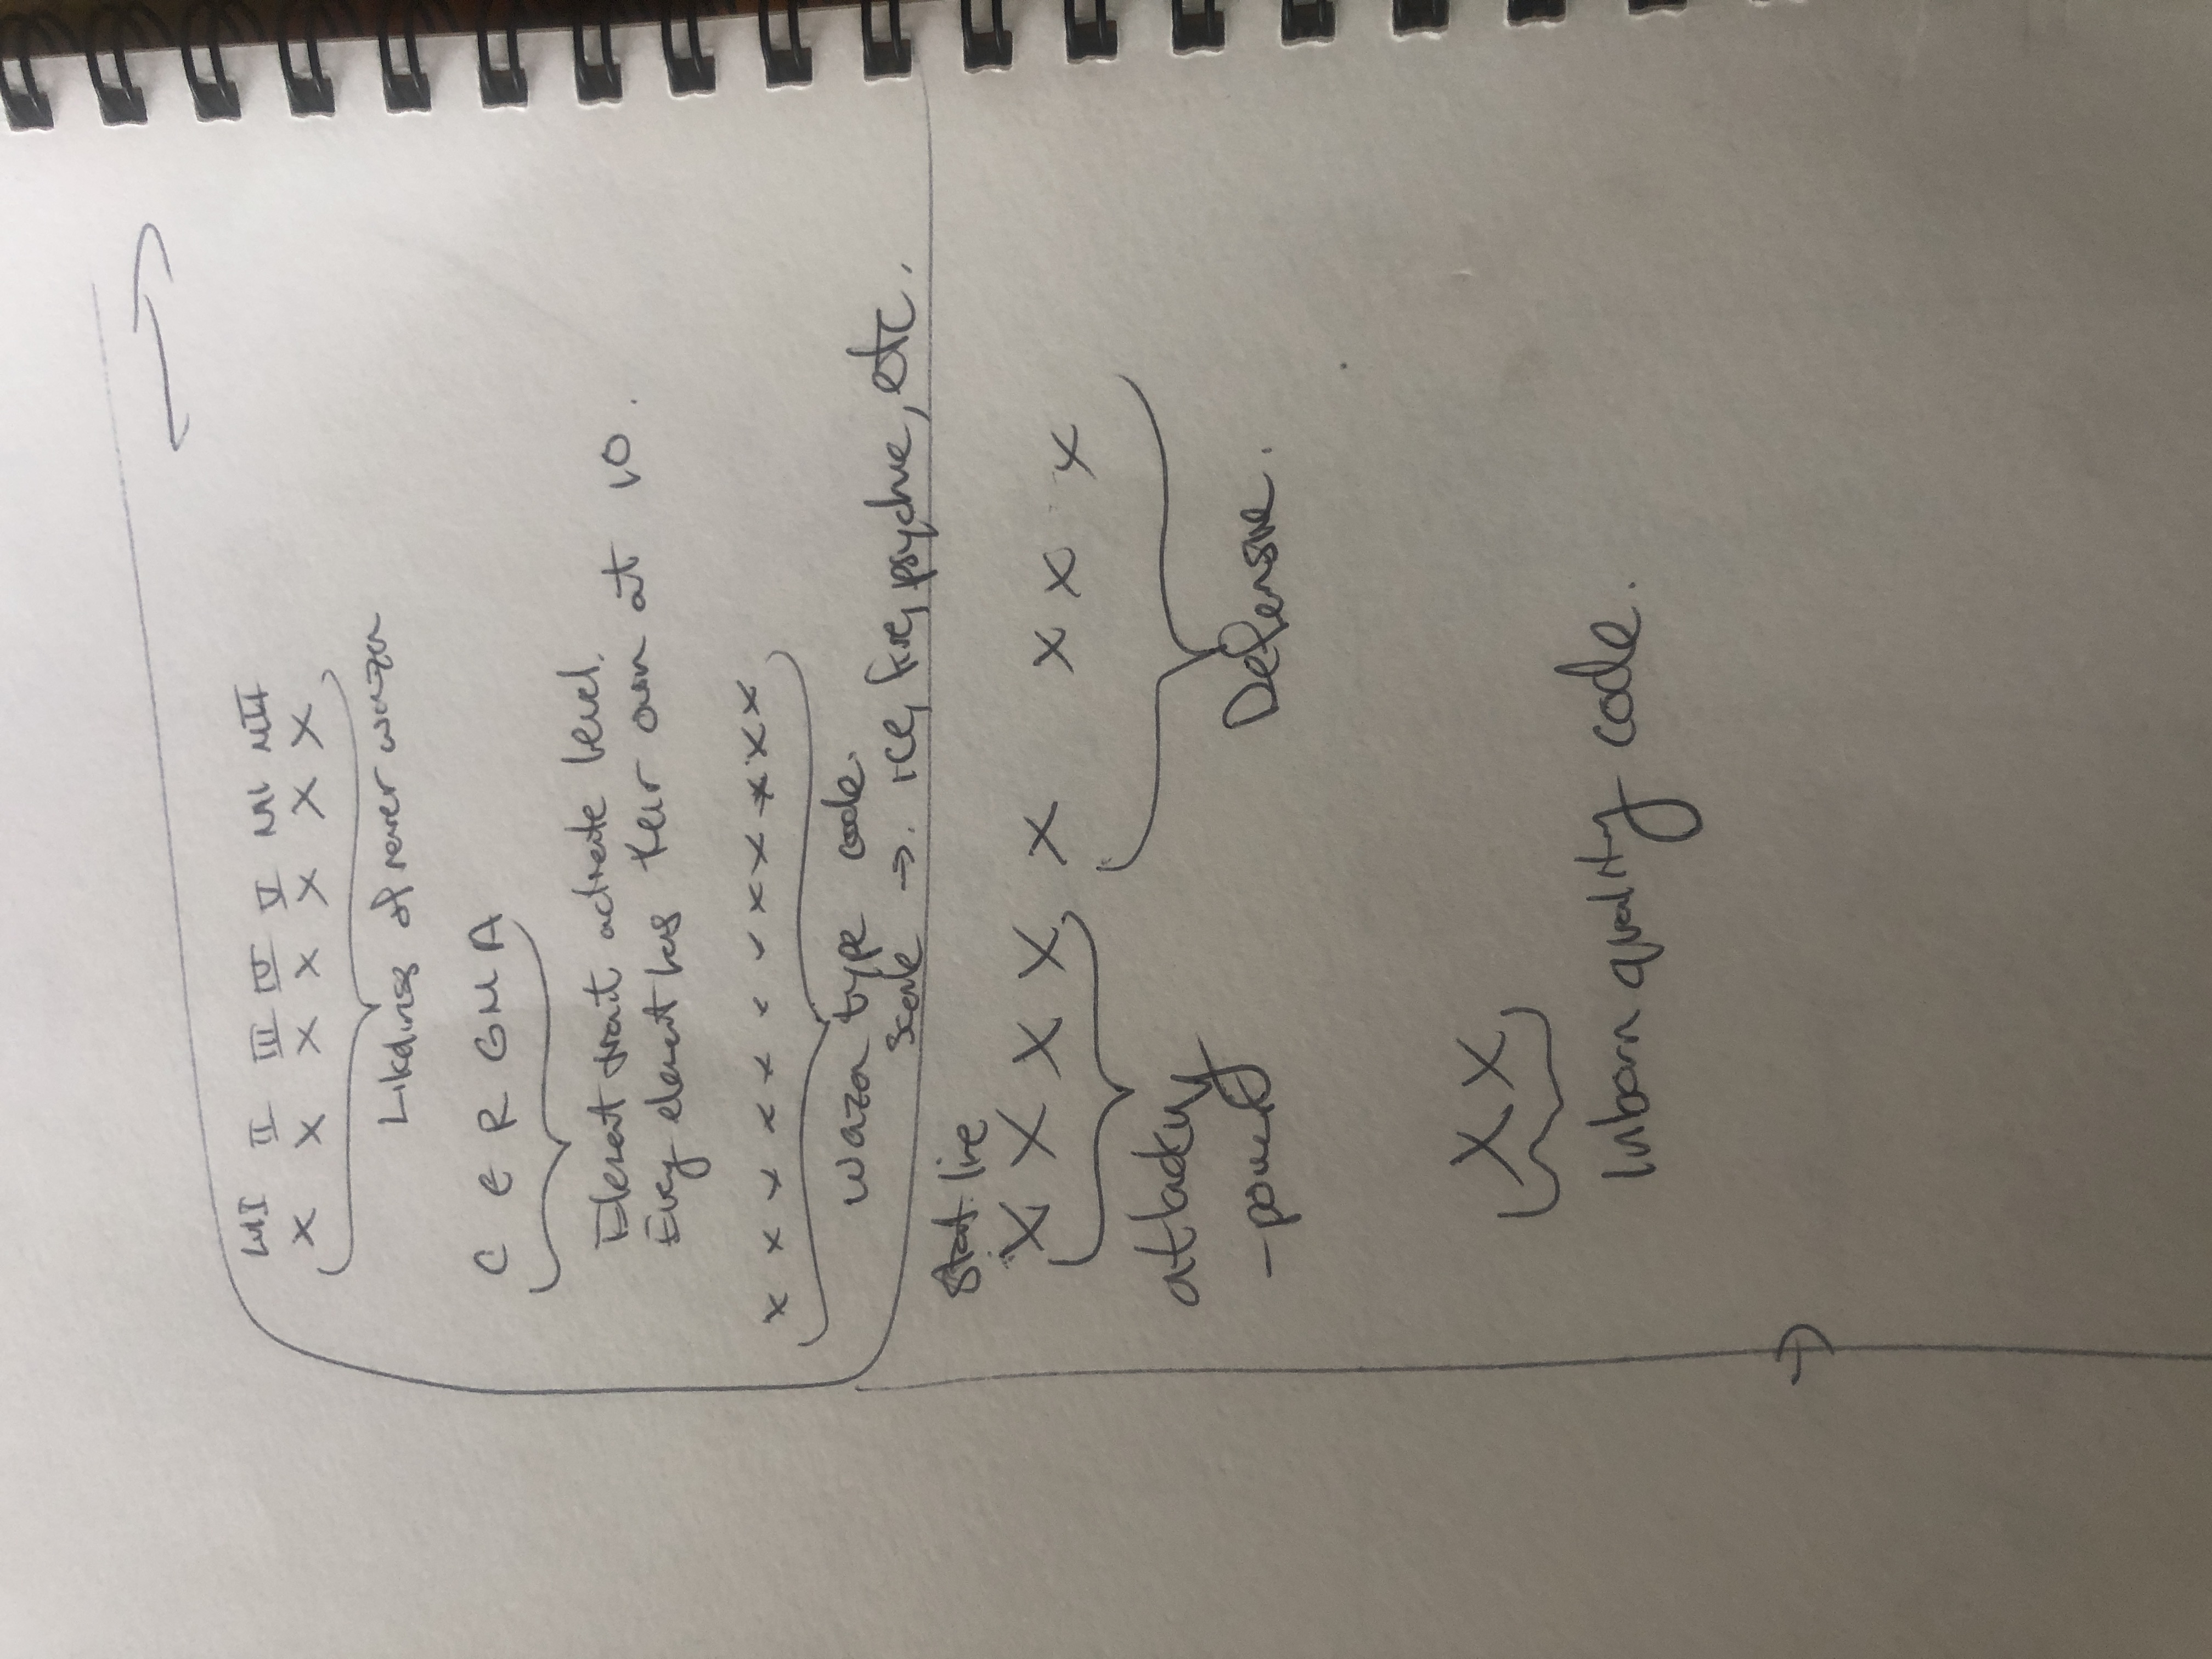 II III IV V
X X X X X X X
Likeliness of rarer waza
C E R G M A
Element trait activate level.
Every element has their own at 10.
x x x x x x x x x x x x
waza type code.
→. ice, fire, psychic, etc.
Start line
X X X X X X X X
attacking
Defensive.
-power
X X
Inborn quality code.